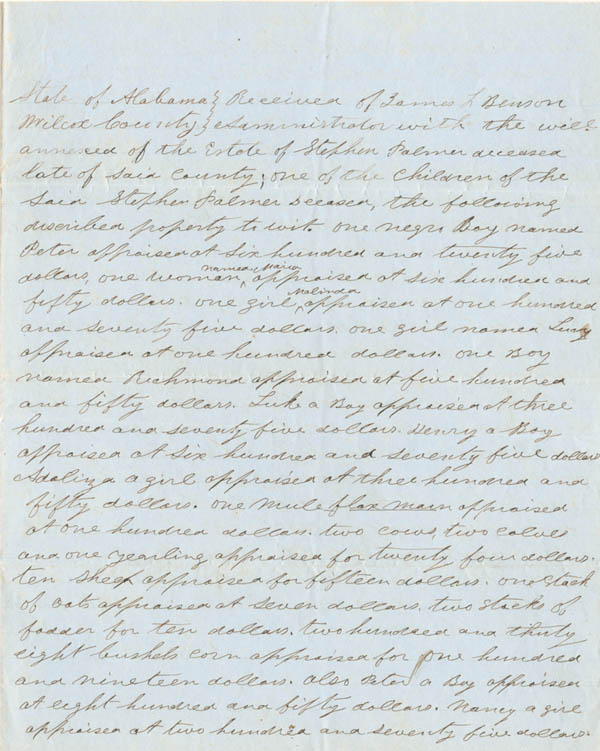 State of Alabama } Received of James L Benson
Wilcox County } Administrator with the will
annexed of the Estate of Stephen Palmer deceased
late of said County; one of the Children of the
said Stephen Palmer deceased, the following
discribed property to wit one negro Boy named
Peter appraised at six hundred and twenty five
dollars, one woman named Maria appraised at six hundred and
fifty dollars. one girl Malinda appraised at one hundred
and seventy five dollars. one girl named Lucy
appraised at one hundred dollars. one Boy
named Richmond appraised at five hundred
and fifty dollars. Luke a Boy appraised at three
hundred and seventy five dollars. Henry a Boy
appraised at six hundred and seventy five dollars
Adaliza a girl appraised at three hundred and
fifty dollars. one mule flax main appraised
at one hundred dollars. two cows, two calves
and one yearling appraised for twenty four dollars.
ten sheep appraised for fifteen dollars. one stack
of oats appraised at seven dollars. two stacks of
fodder for ten dollars. two hundred and thirty
eight bushels corn appraised for one hundred
and nineteen dollars. Also Peter a Boy appraised
at eight hundred and fifty dollars. Nancy a girl
appraised at two hundred and seventy five dollars.